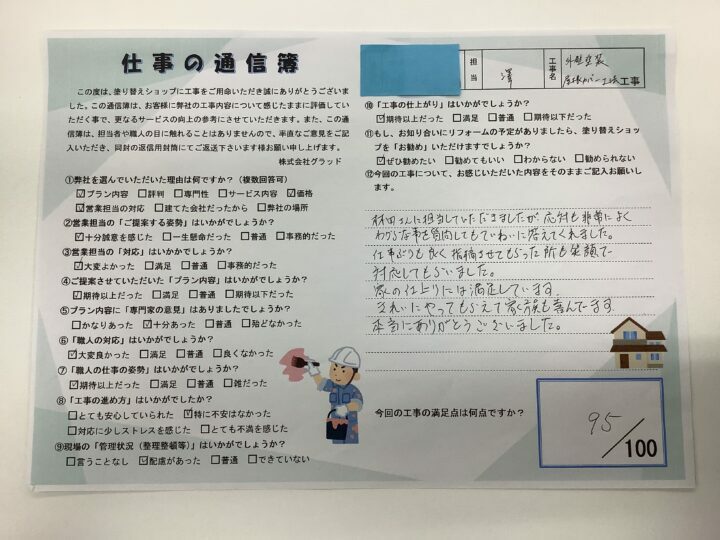 仕事の通信簿
この度は、塗り替えショップに工事をご用命いただき誠にありがとうございまし
た。この通信簿は、お客様に弊社の工事内容について感じたままに評価してい
ただく事で、更なるサービスの向上の参考にさせていただきます。また、この通
信簿は、担当者や職人の目に触れることはありませんので、率直なご意見をご記
入いただき、同封の返信用封筒にてご返送下さいます様お願い申し上げます。
株式会社グラッド
①弊社を選んでいただいた理由は何ですか?(複数回答可)
☑プラン内容 □評判 □専門性 □サービス内容 ☑価格
☑営業担当の対応 □建てた会社だったから □弊社の場所
②営業担当の「ご提案する姿勢」はいかがでしょうか?
☑十分誠意を感じた □一生懸命だった □普通 □事務的だった
③営業担当の「対応」はいかがでしょうか?
☑大変よかった □満足 □普通 □事務的だった
④ご提案させていただいた「プラン内容」はいかがでしょうか?
☑期待以上だった □満足 □普通 □期待以下だった
⑤プラン内容に「専門家の意見」はありましたでしょうか?
□かなりあった ☑十分あった □普通 □殆どなかった
⑥「職人の対応」はいかがでしょうか?
☑大変良かった □満足 □普通 □良くなかった
⑦「職人の仕事の姿勢」はいかがでしょうか?
☑期待以上だった □満足 □普通 □雑だった
⑧「工事の進め方」はいかがでしたか?
□とても安心していられた ☑特に不安はなかった
□対応に少しストレスを感じた □とても不満を感じた
⑨現場の「管理状況(整理整頓等)」はいかがでしょうか?
□言うことなし ☑配慮があった □普通 □できていない
担当
澤
工事名
外壁塗装
屋根カバー工法工事
⑩「工事の仕上がり」はいかがでしょうか?
☑期待以上だった □満足 □普通 □期待以下だった
⑪もし、お知り合いにリフォームの予定がありましたら、塗り替えショッ
プを「お勧め」いただけますでしょうか?
☑ぜひ勧めたい □勧めてもいい □わからない □勧められない
⑫今回の工事について、お感じいただいた内容をそのままご記入お願いし
ます。
さんに担当していただきましたが、応対も非常によく
質問してもていねいに答えてくれました。
仕事ぶりも良く指摘させてもらった所も笑顔で
対応してもらいました。
家の仕上りには満足しています。
きれいにやってもらえて家族も喜んでます
本当にありがとうございました。
今回の工事の満足点は何点ですか?
95
/100